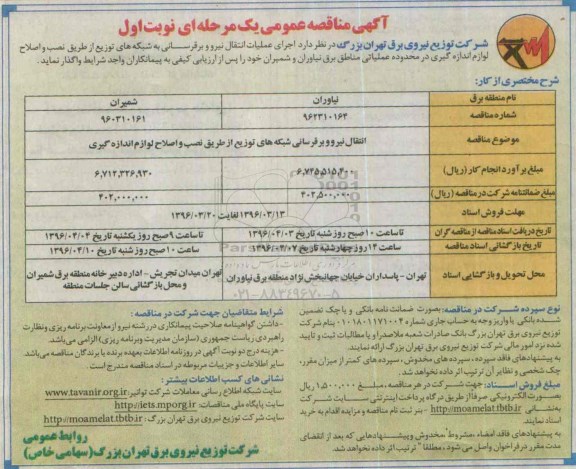 آگهی مناقصه عمومی یک مرحله ای نوبت اول
شرکت توزیع نیروی برق تهران بزرگ در نظر دارد اجرای عملیات انتقال نیرو و برقرسانی به شبکه های توزیع از طریق نصب و اصلاح
لوازم اندازه گیری در محدوده عملیاتی مناطق برق نیاوران و شمیران خود را پس از ارزیابی کیفی به پیمانکاران واجد شرایط واگذار نماید.
شرح مختصری از کار:
نام منطقه برق نیاوران شمیران
شماره مناقصه ۹۶۲۳۱۰۱۶۴ ۹۶۰۳۱۰۱۶۱
موضوع مناقصه انتقال نیرو و برقرسانی شبکه های توزیع از طریق نصب و اصلاح لوازم اندازه گیری
مبلغ برآورد انجام کار (ریال) ۶,۷۴۵,۵۱۵,۴۰۰ ۶,۷۱۲,۳۲۶,۹۳۰
مبلغ ضمانتنامه شرکت در مناقصه (ریال) ۴۰۲,۵۰۰,۰۰۰ ۴۰۲,۰۰۰,۰۰۰
مهلت فروش اسناد ۱۳۹۶/۰۳/۱۳ لغایت ۱۳۹۶/۰۳/۲۰
تاریخ دریافت اسناد مناقصه از مناقصه گران تا ساعت ۱۰ صبح روز شنبه تاریخ ۱۳۹۶/۰۴/۰۳ تا ساعت ۹ صبح روز یکشنبه تاریخ ۱۳۹۶/۰۴/۰۴
تاریخ بازگشائی اسناد مناقصه ساعت ۱۴ روز چهارشنبه تاریخ ۱۳۹۶/۰۴/۰۷ ساعت ۱۰ صبح روز شنبه تاریخ ۱۳۹۶/۰۴/۱۰
محل تحویل و بازگشایی اسناد تهران - پاسداران خیابان جهانبخش نژاد منطقه برق نیاوران تهران میدان تجریش - اداره دبیرخانه منطقه برق شمیران
و محل بازگشائی سالن جلسات منطقه
۰۲۱-۸۸۳۴۹۶۷۰-۵
نوع سپرده شرکت در مناقصه: بصورت ضمانت نامه بانکی و یا چک تضمین
شده بانکی یا واریز وجه به حساب جاری شماره ۰۱۰۱۸۰۱۱۷۱۰۰۴ بنام شرکت
توزیع نیروی برق تهران بزرگ بانک صادرات شعبه ملاصدرا و یا مطالبات ثبت و تایید
شده نزد امور مالی شرکت توزیع نیروی برق تهران بزرگ ارائه نمایند.
به پیشنهادهای فاقد سپرده، سپرده های مخدوش، سپرده های کمتر از میزان مقرر،
چک شخصی و نظایر آن ترتیب اثر داده نخواهد شد.
مبلغ فروش اسناد: جهت شرکت در هر مناقصه، مبلغ ۱,۵۰۰,۰۰۰ ریال
بصورت الکترونیکی صرفا از طریق درگاه پرداخت اینترنتی سایت شرکت
به نشانی http://moamelat.tbtb.ir بنر ثبت نام مناقصه و مزایده اقدام به خرید
اسناد نمایند.
به پیشنهادهای فاقد امضاء، مشروط، مخدوش و پیشنهادهایی که بعد از انقضای
مدت مقرر در فراخوان واصل می شود، مطلقا ترتیب اثر داده نخواهد شد.
شرایط متقاضیان جهت شرکت در مناقصه:
-داشتن گواهینامه صلاحیت پیمانکاری در رشته نیرو از معاونت برنامه ریزی و نظارت
راهبردی ریاست جمهوری (سازمان مدیریت و برنامه ریزی) الزامی می باشد.
- هزینه درج دو نوبت آگهی در روزنامه اطلاعات بعهده برنده یا برندگان مناقصه می باشد.
سایر اطلاعات و جزییات مربوطه در اسناد مناقصه مندرج است.
نشانی های کسب اطلاعات بیشتر:
سایت شبکه اطلاع رسانی معاملات شرکت توانیر: www.tavanir.org.ir
سایت پایگاه ملی مناقصات: http://iets.mporg.ir
سایت شرکت توزیع نیروی برق تهران بزرگ: http://moamelat.tbtb.ir
روابط عمومی
شرکت توزیع نیروی برق تهران بزرگ (سهامی خاص)